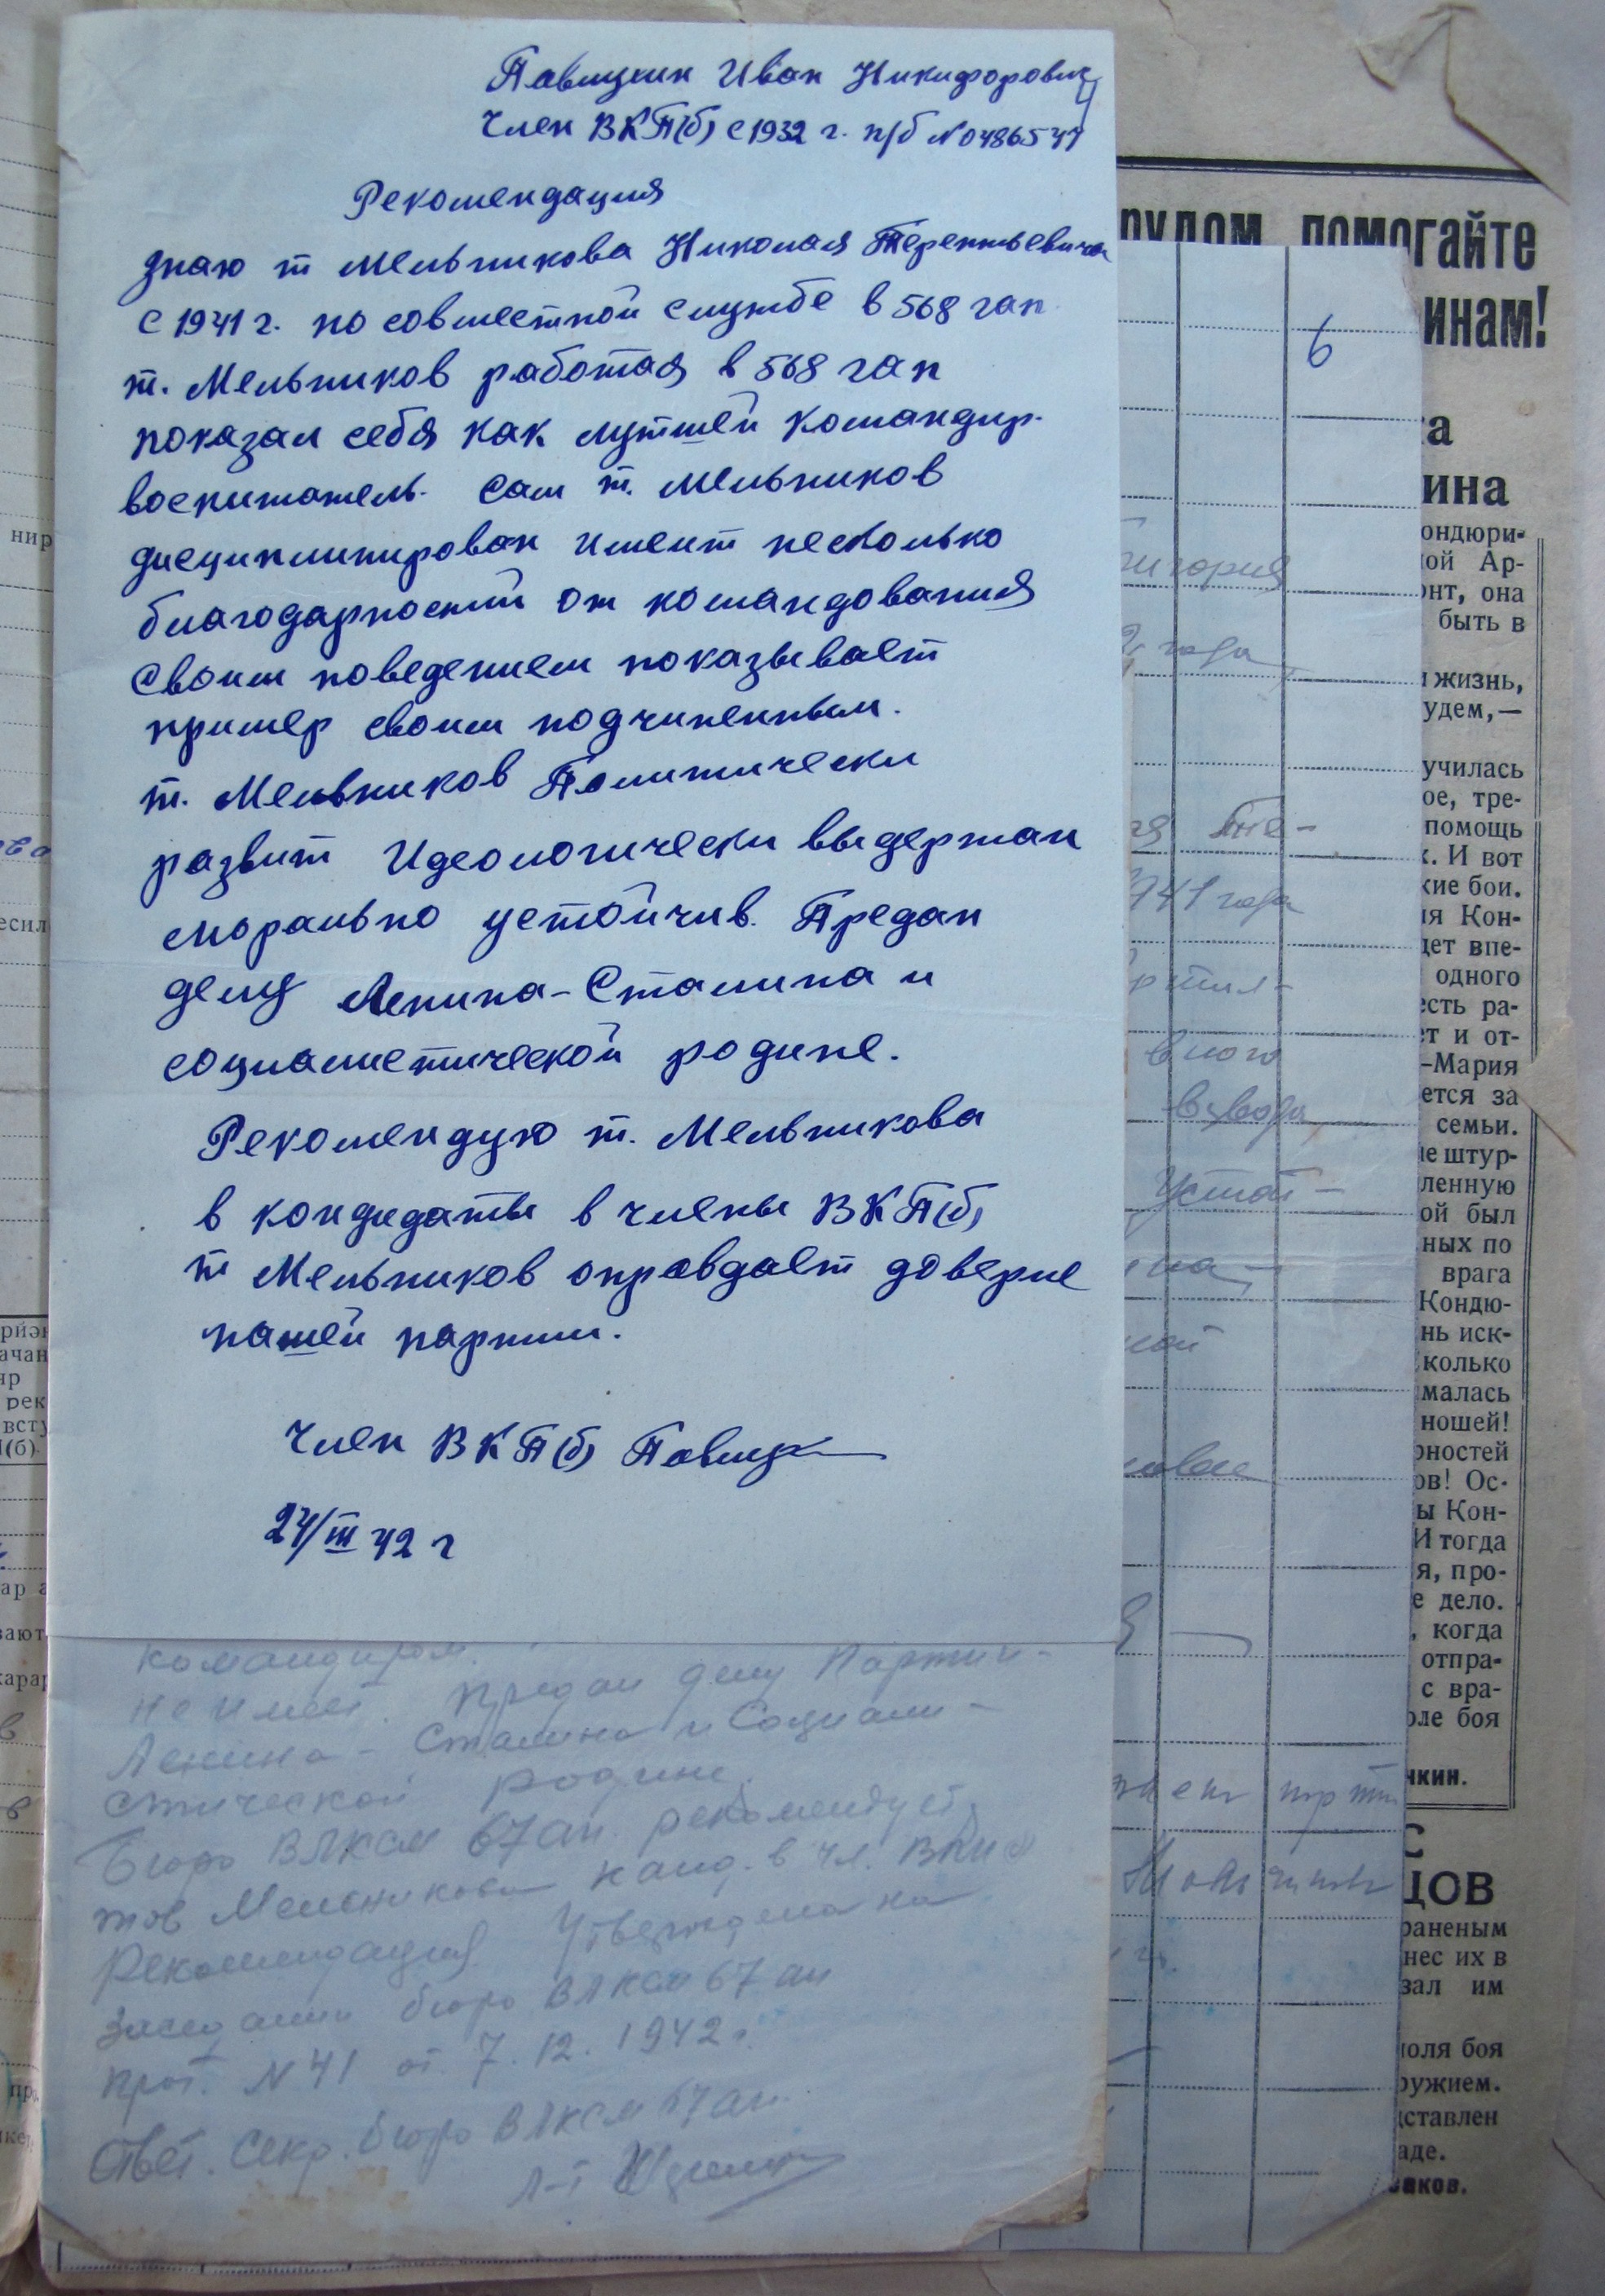 Павлушин Иван Никифорович
Член ВКП(б) с 1932 г. п/б №0486547
Рекомендация
Знаю т Мельникова Николая Терентьевича
с 1941 г. по совместной службе в 568 гап
т. Мельников работая в 568 гап
показал себя как лутшей командир-
воспитатель. Сам т. Мельников
дисциплинирован имеит несколько
благодарностий от командования
Своим поведением показывает
пример своим подчиненным.
т. Мельников Политически
развит Идеологически выдержан
морально устойчив. Предан
делу Ленина-Сталина и
социалистической родине.
Рекомендую т. Мельникова
в кондидаты в члены ВКП(б)
т Мельников оправдает доверие
нашей партии.
Член ВКП(б)
24/III 42 г
командиром.
не имеет. Предан делу Партии-
Ленина - Сталина и Социали-
стической родине.
Бюро ВЛКСМ 67 ап рекомендует
тов Мельникова канд. в чл. ВКПб
Рекомендация Утверждена на
Заседании бюро ВЛКСМ 67 ап
прот. №41 от 7.12.1942 г.
Ответ. Секр. бюро ВЛКСМ 67 ап
л-т
6
года
1941 года
взвода
Устой-
рудом помогайте
инам!
ина
ондюри-
ой Ар-
онт, она
быть в
жизнь,
удем,—
училась
ое, тре-
помощь
к. И вот
кие бои.
ия Кон-
дет впе-
одного
есть ра-
ет и от-
–Мария
ется за
семьи.
не штур-
ленную
ой был
ных по
врага
Кондю-
нь иск-
колько
малась
ношей!
рностей
ов! Ос-
ы Кон-
И тогда
я, про-
е дело.
, когда
отпра-
с вра-
оле боя
чкин.
С
ЦОВ
раненым
нес их в
зал им
поля боя
ружием.
дставлен
аде.
нир
есил
ачан
рек
всту
(б).